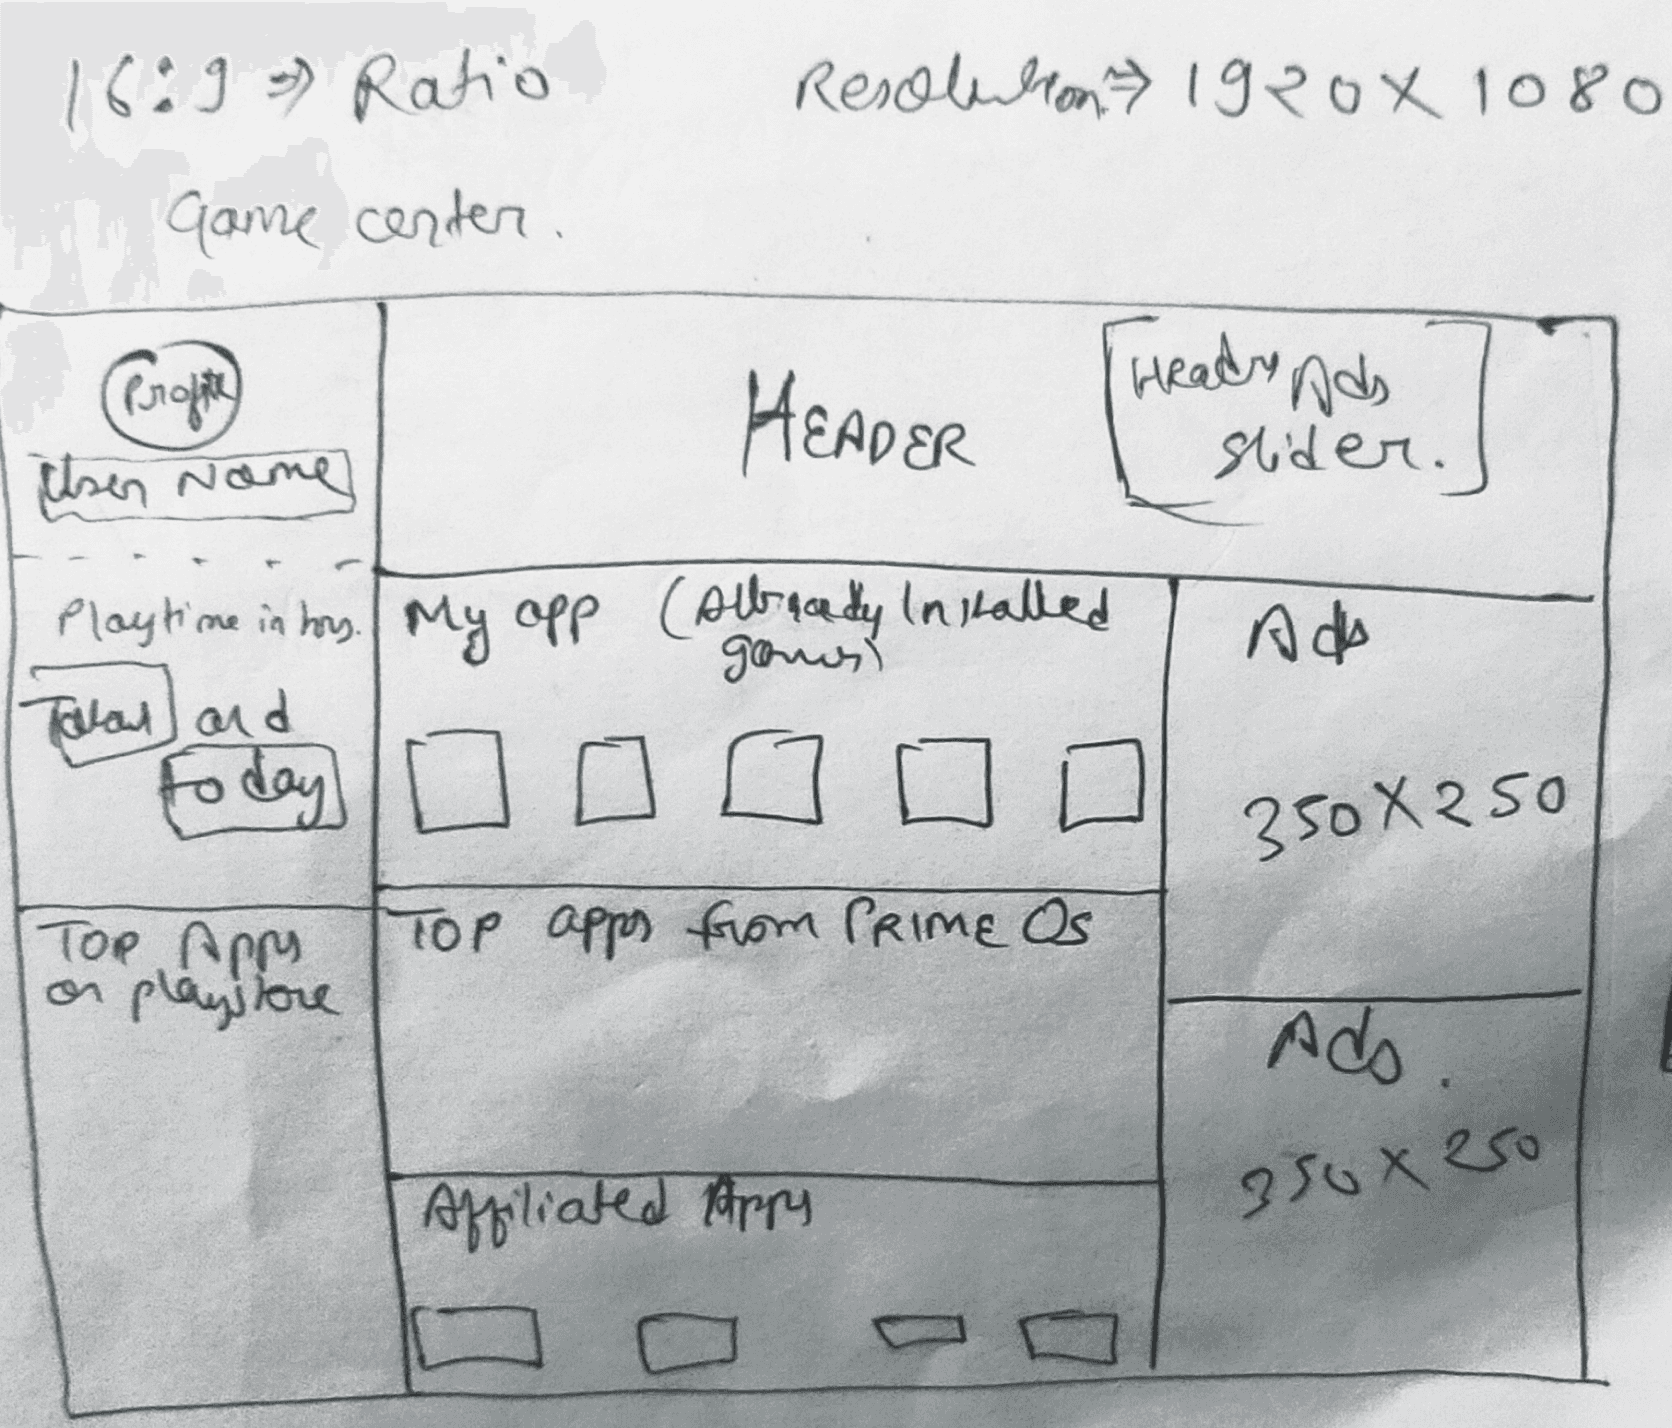 16:9 => Ratio
Resolution => 1920 X 1080
Game center.
Profile
User Name
Playtime in hrs.
Total and
today
Top Apps
on playstore
HEADER
Header Ads
slider.
My app (Already Installed
games)
Top apps from PRIME OS
Affiliated Apps
Ads
350 X 250
Ads.
350 X 250